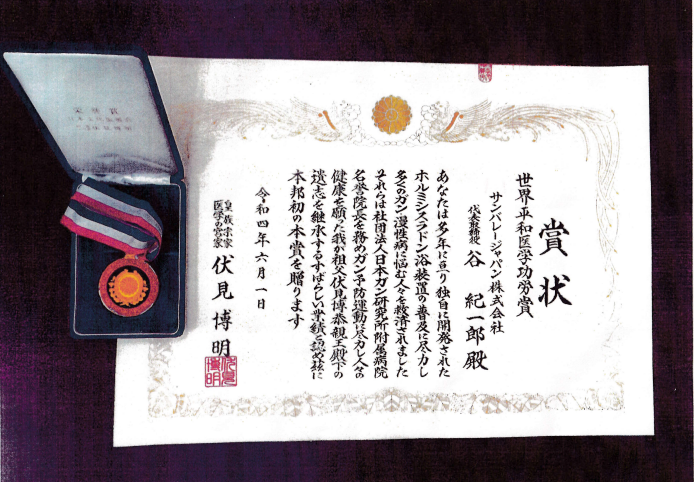 賞状
世界平和医学功労賞
サンバレージャパン株式会社
代表取締役 谷 紀一郎 殿
あなたは多年に亘り独自に開発された
ホルミシスラドン浴装置の普及に尽力し
多くのガン漫性病に悩む人々を救済されました
それらは社団法人日本ガン研究所附属病院
名誉院長を務めガン予防運動に尽力し人々の
健康を願った我が祖父伏見博恭親王殿下の
遺志を継承するすばらしい業績と認め茲に
本邦初の本賞を贈ります
令和四年六月一日
皇族宗家
医学の宮家
伏見博明